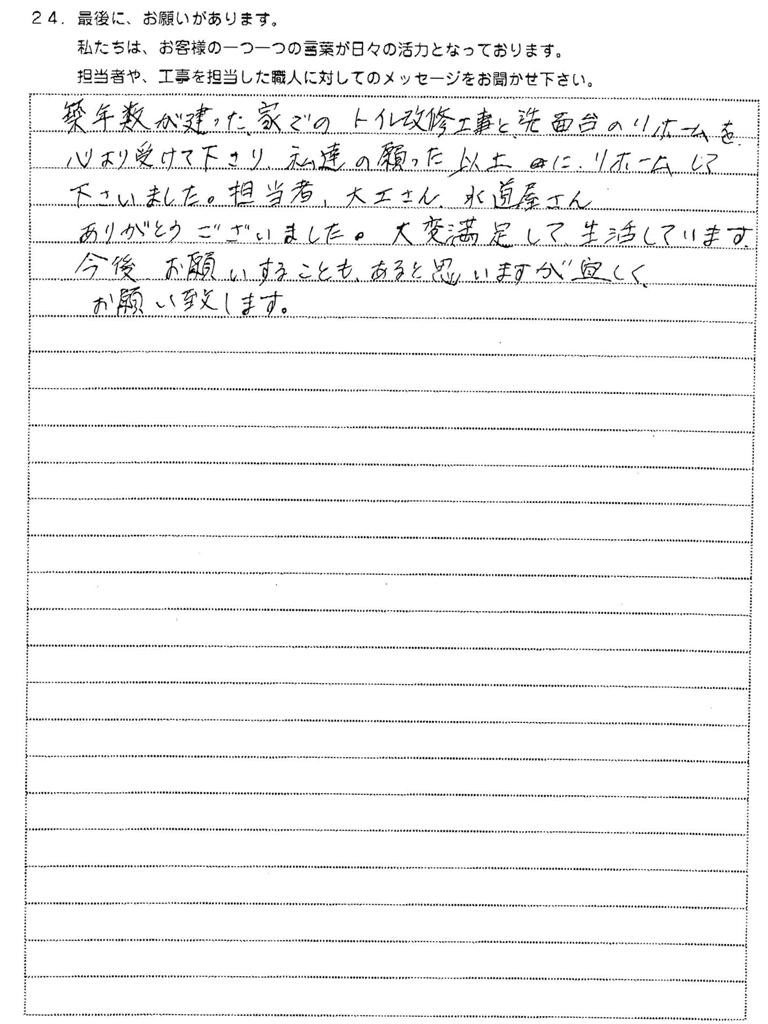 24．最後に、お願いがあります。
私たちは、お客様の一つ一つの言葉が日々の活力となっております。
担当者や、工事を担当した職人に対してのメッセージをお聞かせ下さい。
築年数が建った、家での トイレ改修工事と、洗面台のリホームを、
心より受けて下さり、私達の願った 以上 に、リホームして
下さいました。担当者、大工さん、水道屋さん
ありがとうございました。大変満足して生活しています。
今後 お願いすることも、あると思いますが宜しく、
お願い致します。